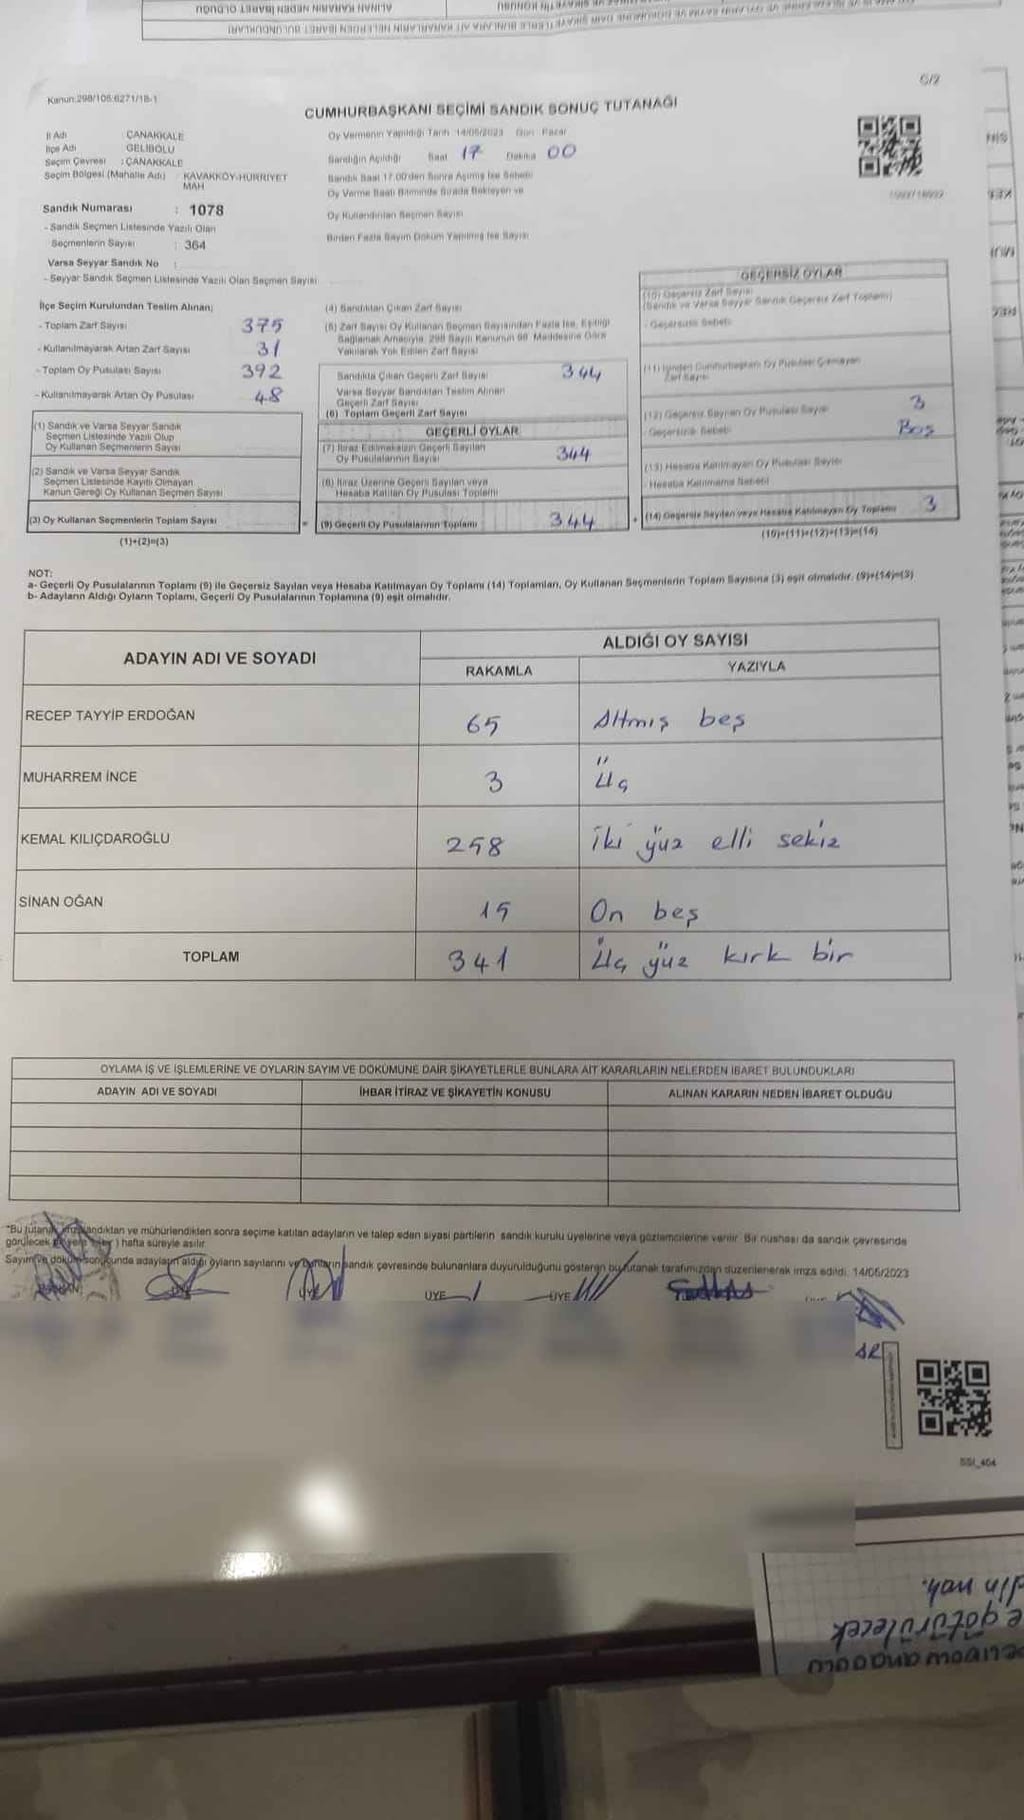 ALINAN KARARIN NEDEN İBARET OLDUĞU
C/2
Kanun:298/105:6271/18-1
CUMHURBAŞKANI SEÇİMİ SANDIK SONUÇ TUTANAĞI
İl Adı ÇANAKKALE
İlçe Adı GELİBOLU
Seçim Çevresi : ÇANAKKALE
Seçim Bölgesi (Mahalle Adı) : KAVAKKÖY-HÜRRİYET MAH
Oy Vermenin Yapıldığı Tarih 14/05/2023 Gün Pazar
Sandığın Açıldığı Saat 17 Dakika 00
Sandık Saat 17.00'den Sonra Açılmış İse Sebebi
Oy Verme Saati Bitiminde Sırada Bekleyen ve
Oy Kullandırılan Seçmen Sayısı
Birden Fazla Sayım Döküm Yapılmış İse Sayısı
Sandık Numarası : 1078
- Sandık Seçmen Listesinde Yazılı Olan
Seçmenlerin Sayısı : 364
Varsa Seyyar Sandık No :
- Seyyar Sandık Seçmen Listesinde Yazılı Olan Seçmen Sayısı
İlçe Seçim Kurulundan Teslim Alınan;
- Toplam Zarf Sayısı 375
- Kullanılmayarak Artan Zarf Sayısı 31
- Toplam Oy Pusulası Sayısı 392
- Kullanılmayarak Artan Oy Pusulası 48
(1) Sandık ve Varsa Seyyar Sandık
Seçmen Listesinde Yazılı Olup
Oy Kullanan Seçmenlerin Sayısı
(2) Sandık ve Varsa Seyyar Sandık
Seçmen Listesinde Kayıtlı Olmayan
Kanun Gereği Oy Kullanan Seçmen Sayısı
(3) Oy Kullanan Seçmenlerin Toplam Sayısı
(1)+(2)=(3)
(4) Sandıktan Çıkan Zarf Sayısı
(5) Zarf Sayısı Oy Kullanan Seçmen Sayısından Fazla İse, Eşitliği
Sağlamak Amacıyla, 298 Sayılı Kanunun 98. Maddesine Göre
Yakılarak Yok Edilen Zarf Sayısı
Sandıkta Çıkan Geçerli Zarf Sayısı 344
Varsa Seyyar Sandıktan Teslim Alınan
Geçerli Zarf Sayısı
(6) Toplam Geçerli Zarf Sayısı
GEÇERLİ OYLAR
(7) İtiraz Edilmeksizin Geçerli Sayılan
Oy Pusulalarının Sayısı 344
(8) İtiraz Üzerine Geçerli Sayılan veya
Hesaba Katılan Oy Pusulası Toplamı
(9) Geçerli Oy Pusulalarının Toplamı 344
GEÇERSİZ OYLAR
(10) Geçersiz Zarf Sayısı
(Sandık ve Varsa Seyyar Sandık Geçersiz Zarf Toplamı)
- Geçersizlik Sebebi
(11) İçinden Cumhurbaşkanı Oy Pusulası Çıkmayan
Zarf Sayısı
(12) Geçersiz Sayılan Oy Pusulası Sayısı 3
- Geçersizlik Sebebi Boş
(13) Hesaba Katılmayan Oy Pusulası Sayısı
- Hesaba Katılmama Sebebi
(14) Geçersiz Sayılan veya Hesaba Katılmayan Oy Toplamı 3
(10)+(11)+(12)+(13)=(14)
NOT:
a- Geçerli Oy Pusulalarının Toplamı (9) ile Geçersiz Sayılan veya Hesaba Katılmayan Oy Toplamı (14) Toplamları, Oy Kullanan Seçmenlerin Toplam Sayısına (3) eşit olmalıdır. (9)+(14)=(3)
b- Adayların Aldığı Oyların Toplamı, Geçerli Oy Pusulalarının Toplamına (9) eşit olmalıdır.
ADAYIN ADI VE SOYADI
ALDIĞI OY SAYISI
RAKAMLA YAZIYLA
RECEP TAYYİP ERDOĞAN 65 Altmış beş
MUHARREM İNCE 3 Üç
KEMAL KILIÇDAROĞLU 258 İki yüz elli sekiz
SİNAN OĞAN 15 On beş
TOPLAM 341 Üç yüz kırk bir
OYLAMA İŞ VE İŞLEMLERİNE VE OYLARIN SAYIM VE DÖKÜMÜNE DAİR ŞİKAYETLERLE BUNLARA AİT KARARLARIN NELERDEN İBARET BULUNDUKLARI
ADAYIN ADI VE SOYADI İHBAR İTİRAZ VE ŞİKAYETİN KONUSU ALINAN KARARIN NEDEN İBARET OLDUĞU
"Bu tutanak imzalandıktan ve mühürlendikten sonra seçime katılan adayların ve talep eden siyasi partilerin sandık kurulu üyelerine veya gözlemcilerine verilir. Bir nüshası da sandık çevresinde
görülecek bir yere ) hafta süreyle asılır.
Sayım ve döküm sonucunda adayların aldığı oyların sayılarını ve bunların sandık çevresinde bulunanlara duyurulduğunu gösteren bu tutanak tarafımızdan düzenlenerek imza edildi. 14/05/2023
ÜYE ÜYE
SSI_404
götürülecek